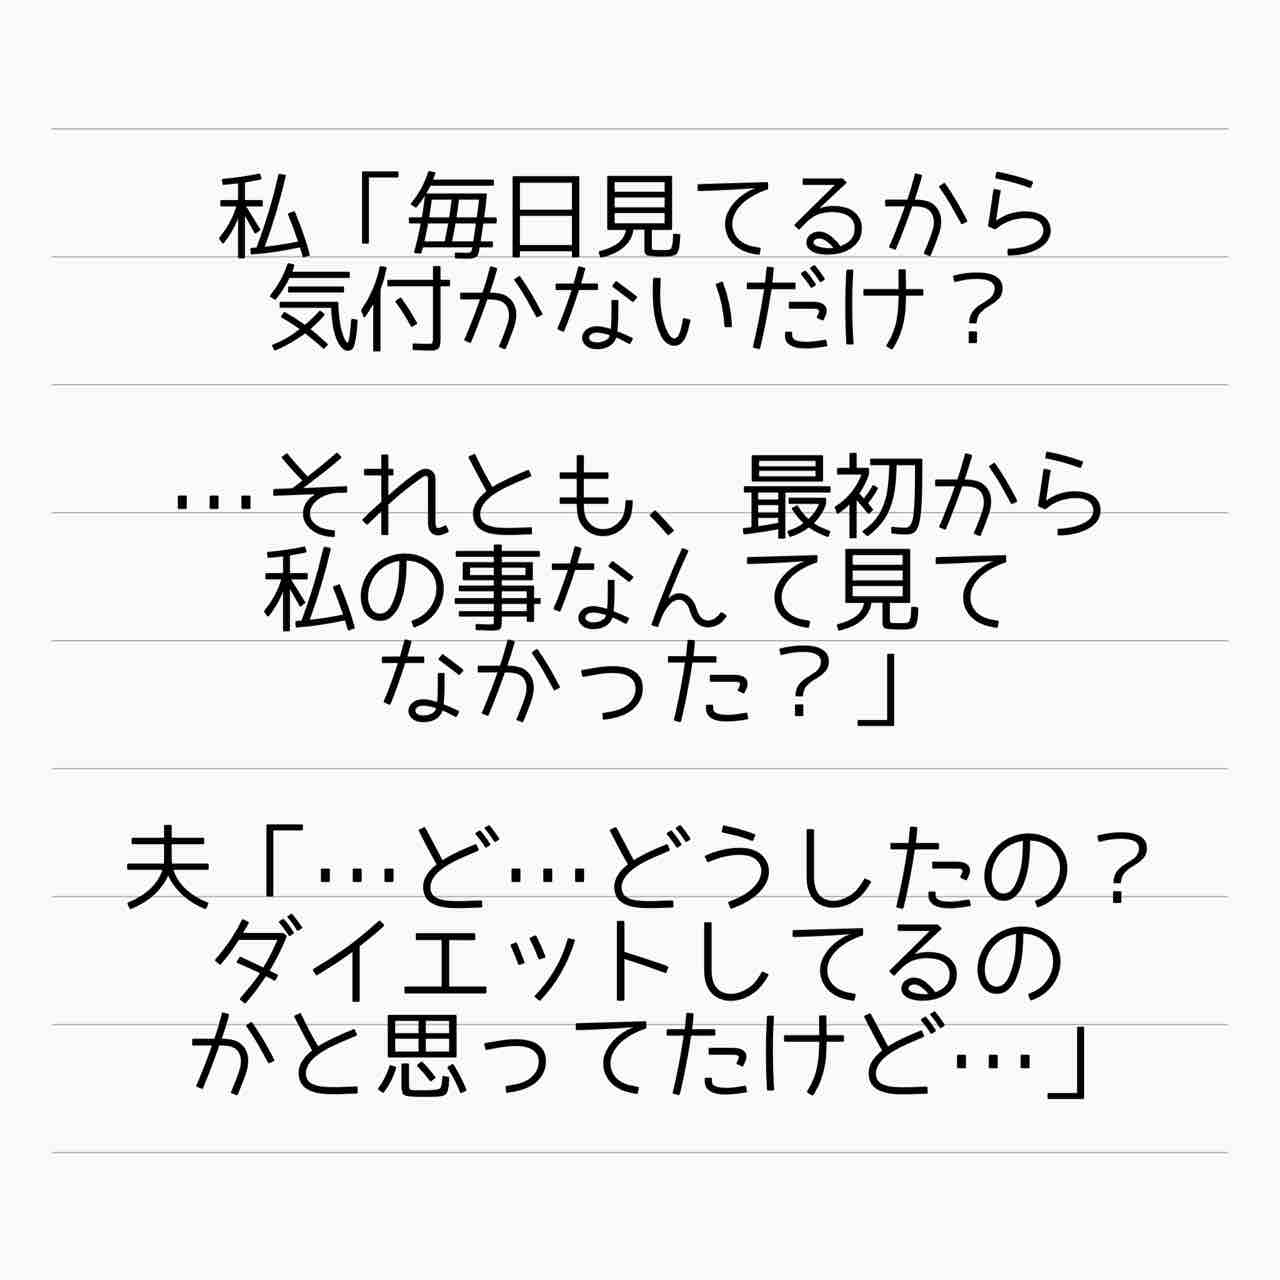 私「毎日見てるから
気付かないだけ？
…それとも、最初から
私の事なんて見て
なかった？」
夫「…ど…どうしたの？
ダイエットしてるの
かと思ってたけど…」